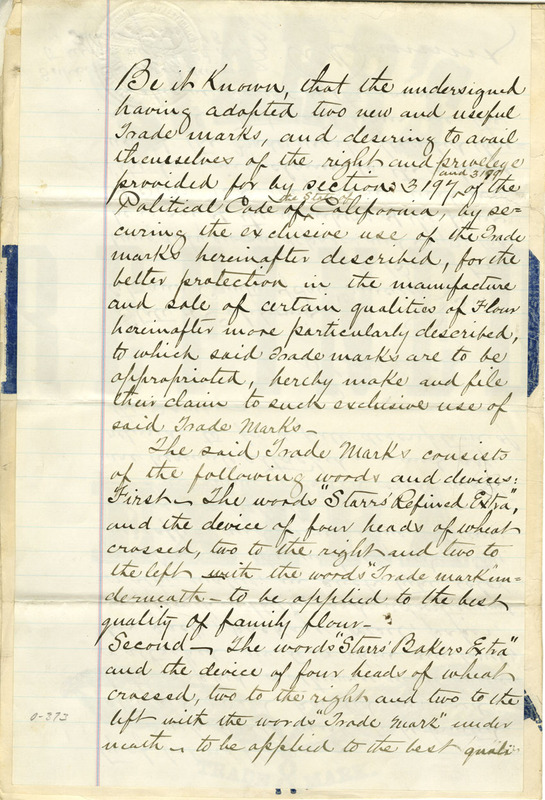 Be it Known, that the undersigned
having adopted two new and useful
Trade marks, and desiring to avail
themselves of the right and privelege
and 3199
provided for by sections 3197 of the
the State of
Political Code of California, by se-
curing the exclusive use of the Trade
marks hereinafter described, for the
better protection in the manufacture
and sale of certain qualities of Flour
hereinafter more particularly described,
to which said Trade marks are to be
appropriated, hereby make and file
their claim to such exclusive use of
said Trade Marks -
The said Trade Marks consists
of the following words and devices:
First - The words "Starrs' Refined Extra",
and the device of four heads of wheat
crossed, two to the right and two to
the left with the words "Trade mark" un-
derneath - to be applied to the best
quality of family flour -
Second - The words "Starrs' Bakers Extra"
and the device of four heads of wheat
crossed, two to the right and two to the
left with the words "Trade Mark" under
neath - to be applied to the best quali-
0-373